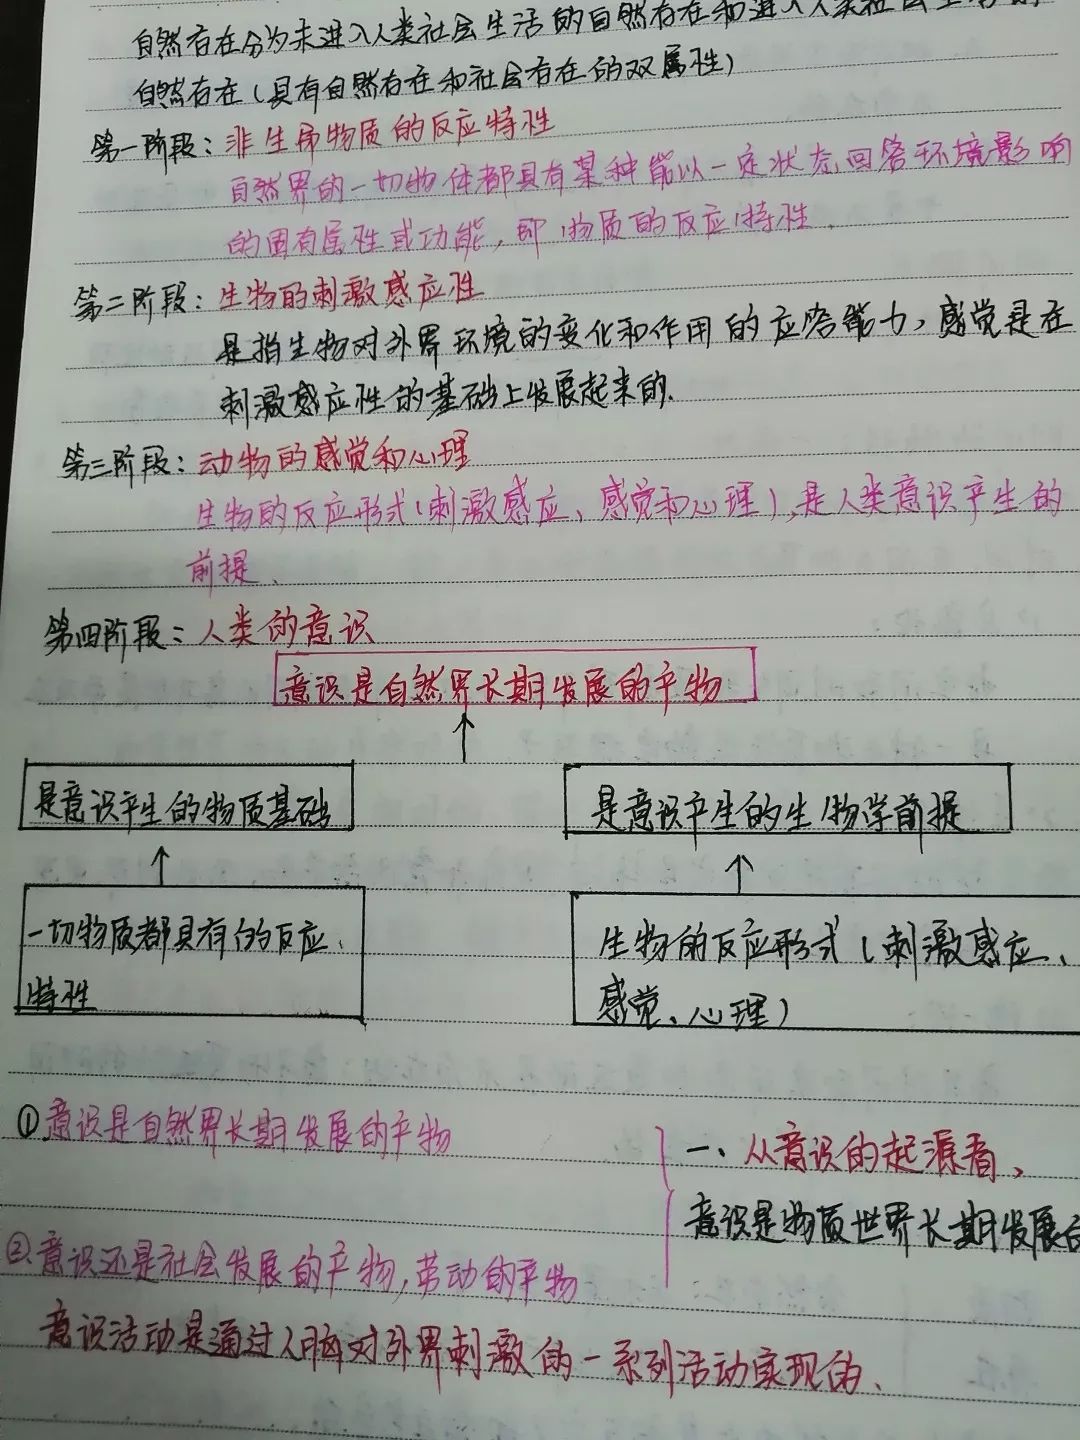 自然存在分为未进入人类社会生活的自然存在和进入人类社会生活的
自然存在(具有自然存在和社会存在的双属性)
第一阶段:非生命物质的反应特性
自然界的一切物体都具有某种能以一定状态回答环境影响
的固有属性或功能,即物质的反应特性、
第二阶段:生物的刺激感应性
是指生物对外界环境的变化和作用的应答能力,感觉是在
刺激感应性的基础上发展起来的.
第三阶段:动物的感觉和心理
生物的反应形式(刺激感应、感觉和心理),是人类意识产生的
前提、
第四阶段:人类的意识
意识是自然界长期发展的产物
是意识产生的物质基础
是意识产生的生物学前提
一切物质都具有的反应、
特性
生物的反应形式(刺激感应、
感觉、心理)
①意识是自然界长期发展的产物
一、从意识的起源看、
意识是物质世界长期发展
②意识还是社会发展的产物,劳动的产物
意识活动是通过人脑对外界刺激的一系列活动实现的、